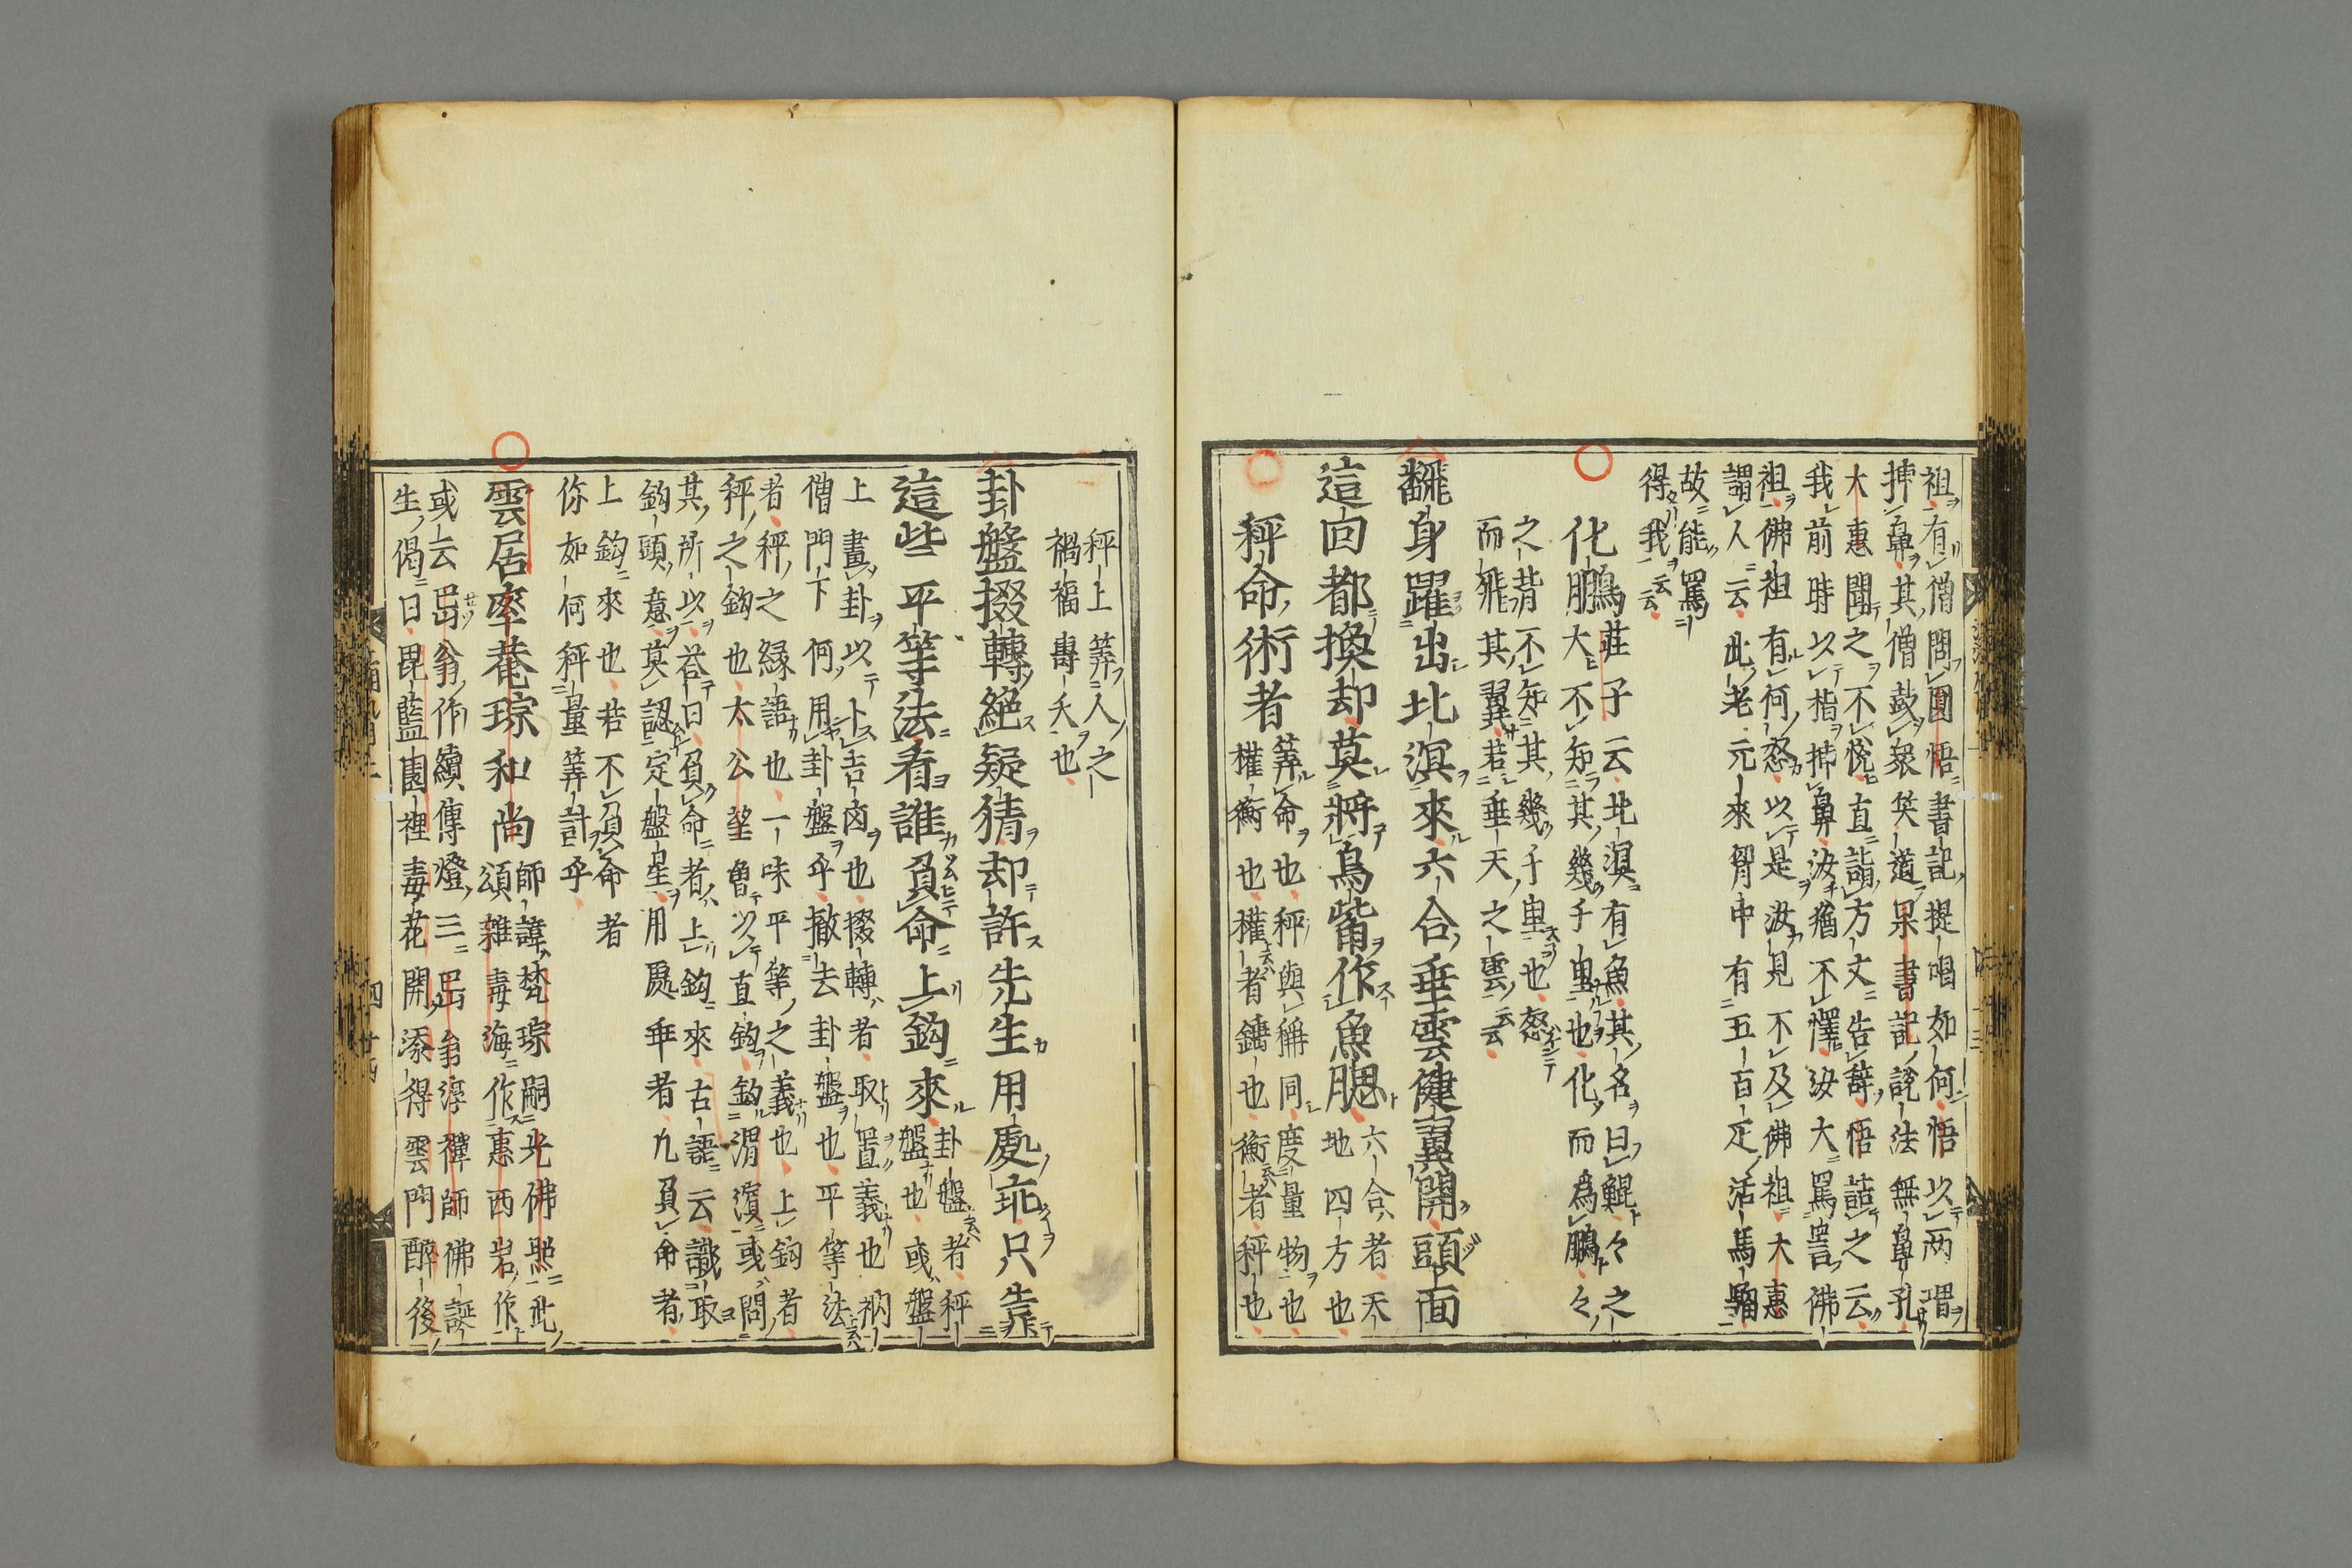 祖有僧問圓悟書記提唱如何悟以両喟
捭鼻其僧鼓衆笑道杲書記説法無鼻孔
大惠聞之不悦直詣方丈告辞悟詰之云
我前時以楷捭鼻汝猶不懌汝大罵詈佛
祖佛祖有何怒以是汝見不及佛祖大惠
謂人云此老元来胷中有五百疋活馬騮
故能罵
得我云云
化鵬
莊子云北溟有魚其名曰鯤々之
大不知其幾千里也化而為鵬々
之背不知其幾千里也怒
而飛其翼若垂天之雲云云
翻身躍出北溟來六合垂雲健翼開頭面
這回都換却莫將鳥觜作魚腮
六合者天
地四方也
秤命術者
筭命也秤與稱同度量物也
權衡也權者錘也衡者秤也
秤上筭人之
禍福壽夭也
卦盤掇轉絶疑猜却許先生用處乖只靠
這些平等法看誰負命上鈎來
卦盤者秤
盤也或盤
上畫卦以卜吉凶也掇轉者取置義也衲
僧門下何用卦盤乎撤去卦盤也平等法
者秤之縁語也一味平等之義也上鈎者
秤之鈎也太公望曽以直鈎鈎渭濱或問
其所以荅曰負命者上鈎來古語云識取
鈎頭意莫認定盤星用處乖者九負命者
上鈎來也若不負命者
你如何秤量筭計乎
雲居率菴琮和尚
師諱梵琮嗣光佛照此
頌雜毒海作惠西岩作
或云出翁作續傳燈三出翁淳禪師佛誕
生偈曰毘藍園裡毒花開添得雲門醉後